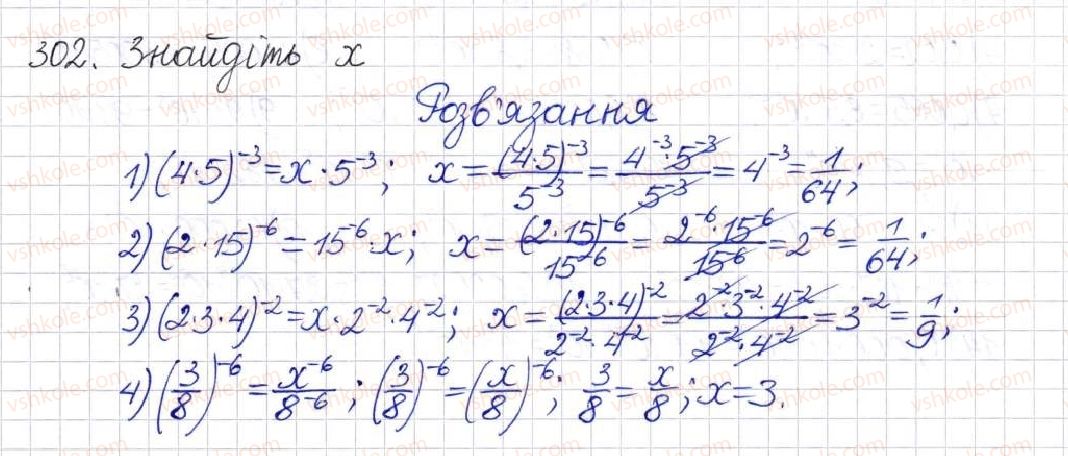 302. Знайдіть x
Розв'язання
1) (4·5)^{-3} = x·5^{-3}; x = \frac{(4·5)^{-3}}{5^{-3}} = \frac{4^{-3}·5^{-3}}{5^{-3}} = 4^{-3} = \frac{1}{64};
2) (2·15)^{-6} = 15^{-6}·x; x = \frac{(2·15)^{-6}}{15^{-6}} = \frac{2^{-6}·15^{-6}}{15^{-6}} = 2^{-6} = \frac{1}{64};
3) (2·3·4)^{-2} = x·2^{-2}·4^{-2}; x = \frac{(2·3·4)^{-2}}{2^{-2}·4^{-2}} = \frac{2^{-2}·3^{-2}·4^{-2}}{2^{-2}·4^{-2}} = 3^{-2} = \frac{1}{9};
4) (\frac{3}{8})^{-6} = \frac{x^{-6}}{8^{-6}}; (\frac{3}{8})^{-6} = (\frac{x}{8})^{-6}; \frac{3}{8} = \frac{x}{8}; x = 3.
vshkole.com